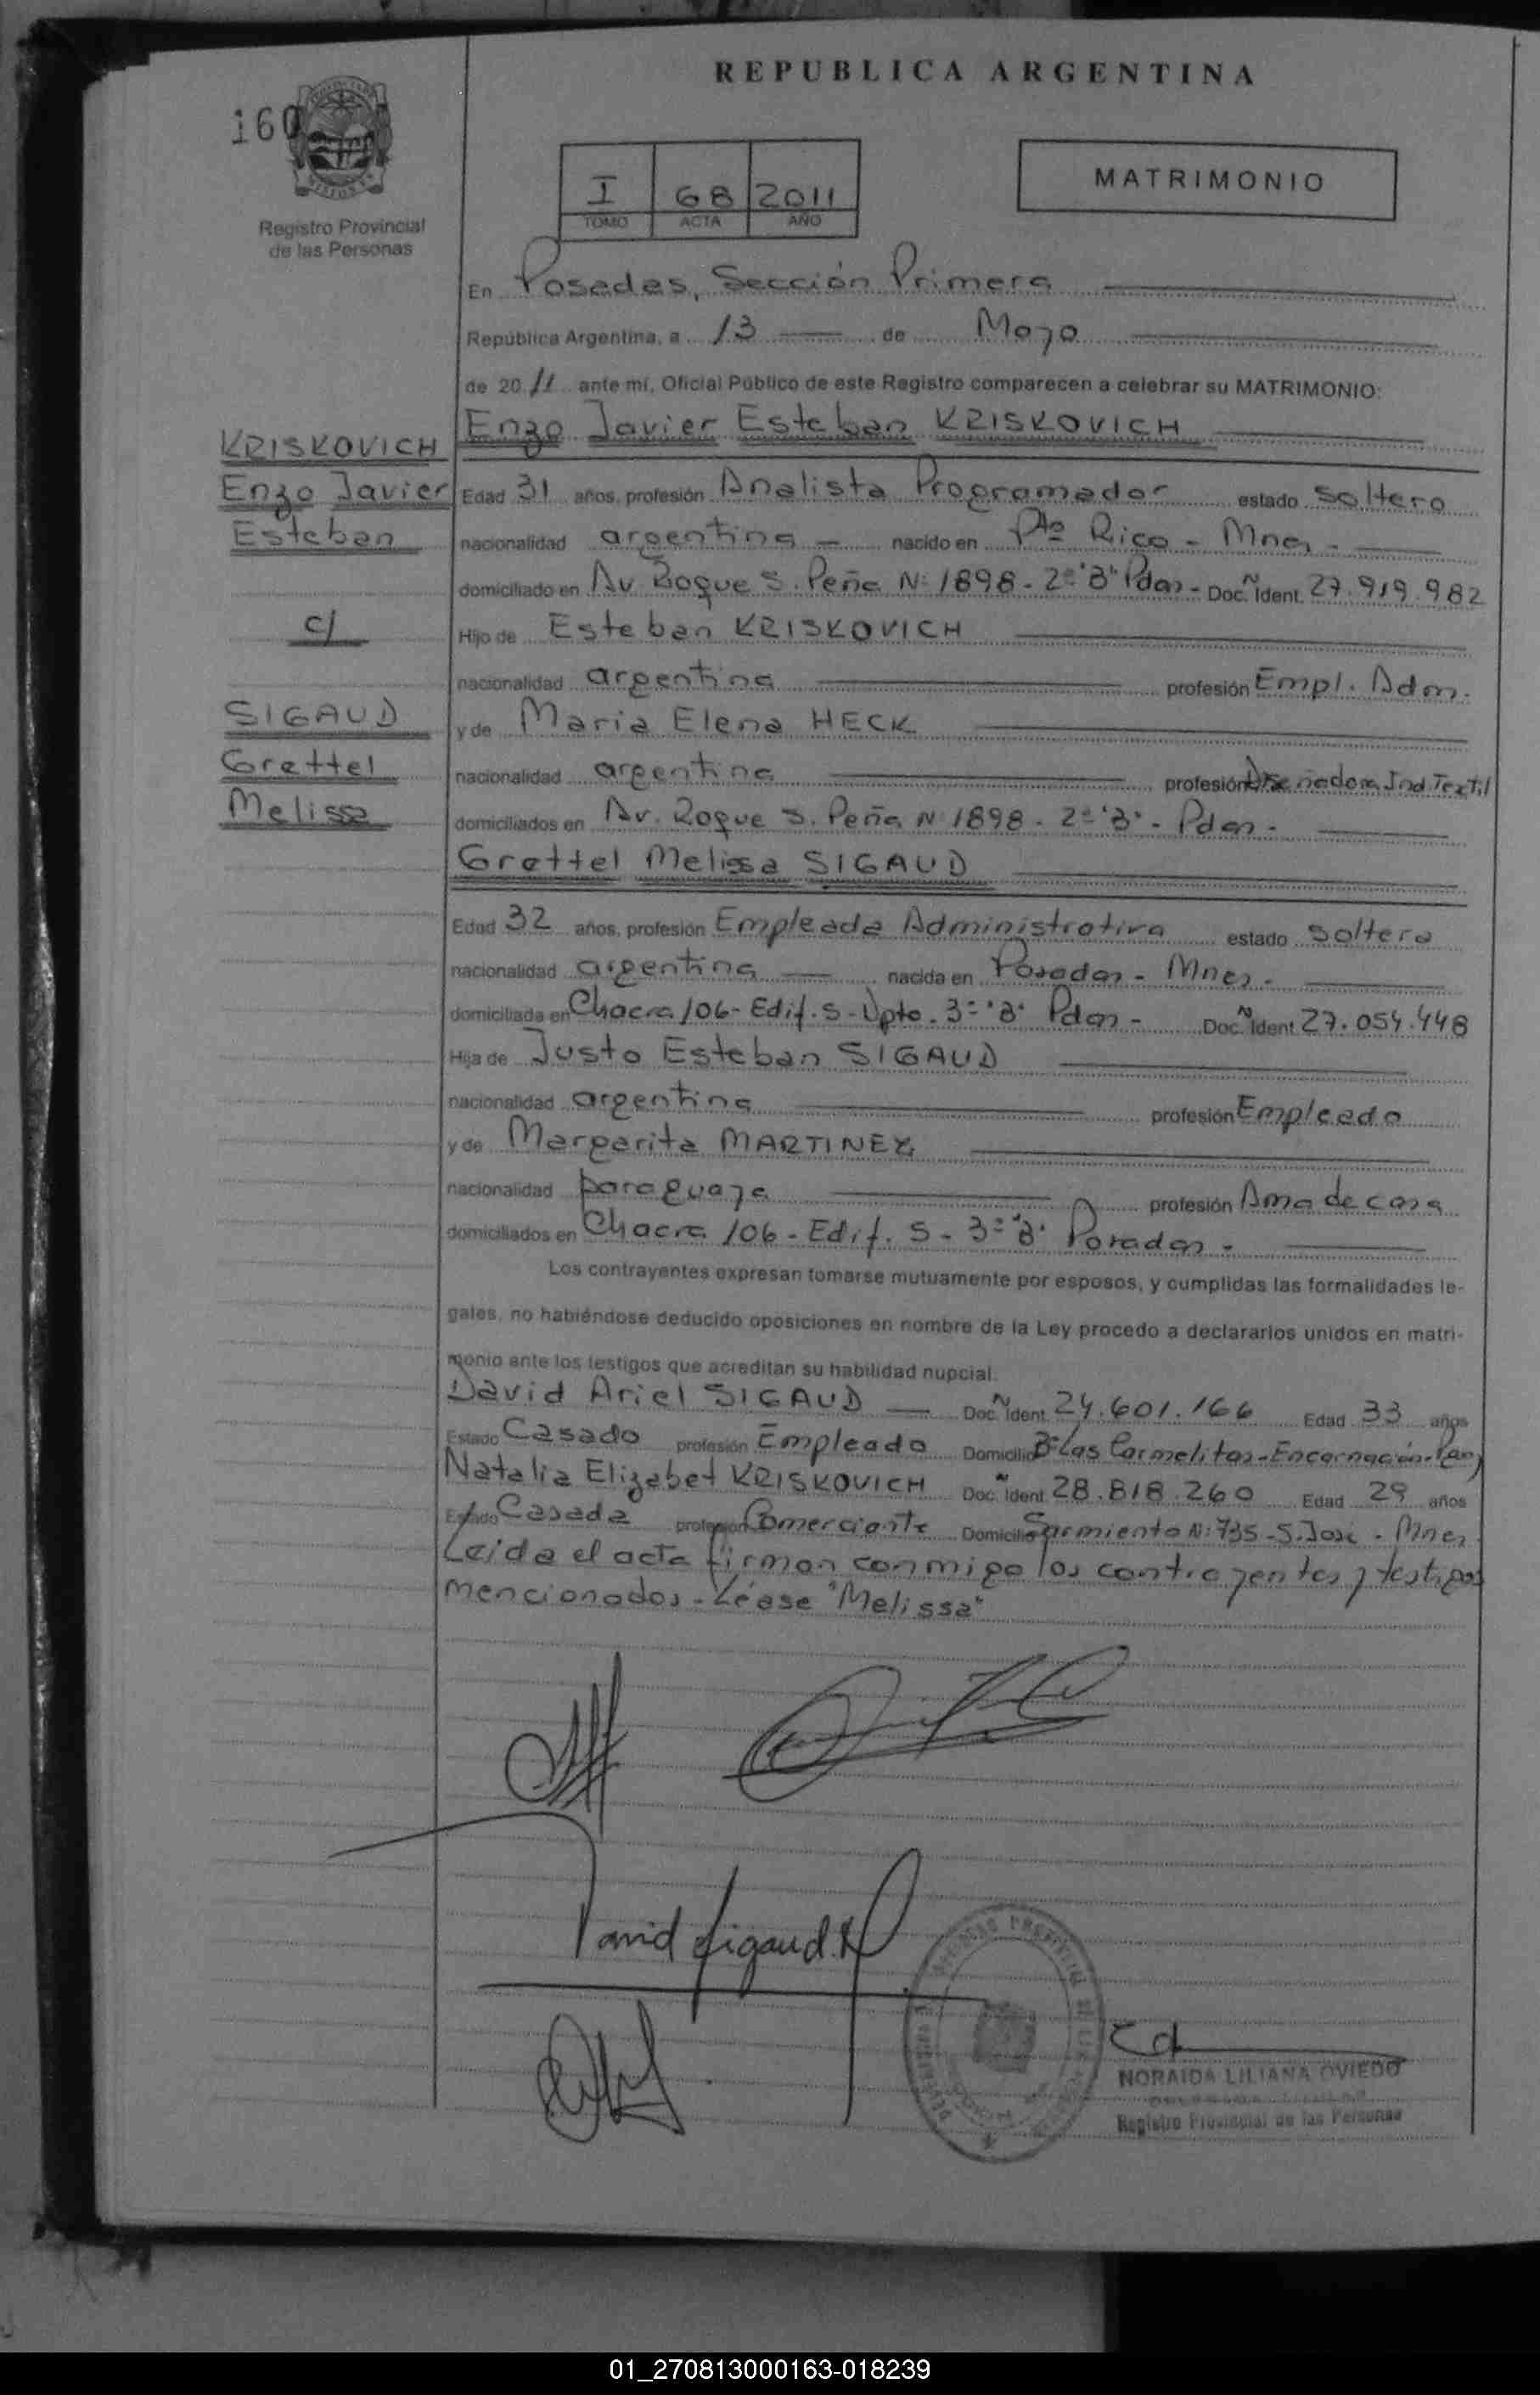 REPUBLICA ARGENTINA
160
Registro Provincial
de las Personas
I 68 2011
TOMO ACTA AÑO
MATRIMONIO
En Posadas, Sección Primera
República Argentina, a 13 de Mayo
de 2011 ante mí, Oficial Público de este Registro comparecen a celebrar su MATRIMONIO:
KRISKOVICH
Enzo Javier
Esteban
c/
SIGAUD
Grettel
Melissa
Enzo Javier Esteban KRISKOVICH
Edad 31 años, profesión Analista Programador estado soltero
nacionalidad argentina nacido en Pto Rico - Mnes -
domiciliado en Av. Roque S. Peña Nº 1898 - 2º "B" Pdas - Doc. Ident. Nº 27.919.982
Hijo de Esteban KRISKOVICH
nacionalidad argentina profesión Empl. Adm.
y de Maria Elena HECK
nacionalidad argentina profesión Diseñadora Ind Textil
domiciliados en Av. Roque S. Peña Nº 1898 - 2º "B" - Pdas -
Grettel Melissa SIGAUD
Edad 32 años, profesión Empleada Administrativa estado soltera
nacionalidad argentina nacida en Posadas - Mnes -
domiciliada en Chacra 106 - Edif. 5 - Dpto. 3º "B" Pdas - Doc. Ident. Nº 27.054.448
Hija de Justo Esteban SIGAUD
nacionalidad argentina profesión Empleado
y de Margarita MARTINEZ
nacionalidad paraguaya profesión Ama de casa
domiciliados en Chacra 106 - Edif. 5 - 3º "B" Posadas -
Los contrayentes expresan tomarse mutuamente por esposos, y cumplidas las formalidades le-
gales, no habiéndose deducido oposiciones en nombre de la Ley procedo a declararlos unidos en matri-
monio ante los testigos que acreditan su habilidad nupcial.
David Ariel SIGAUD Doc. Ident. Nº 24.601.166 Edad 33 años
Estado Casado profesión Empleado Domicilio Bº Las Carmelitas - Encarnación - Pay
Natalia Elizabet KRISKOVICH Doc. Ident. Nº 28.818.260 Edad 29 años
Estado Casada profesión Comerciante Domicilio Sarmiento Nº 735 - S. José - Mnes
Leida el acta firman conmigo los contrayentes y testigos
mencionados - Léase "Melissa"
David Sigaud
NORAIDA LILIANA OVIEDO
Registro Provincial de las Personas
01_270813000163-018239